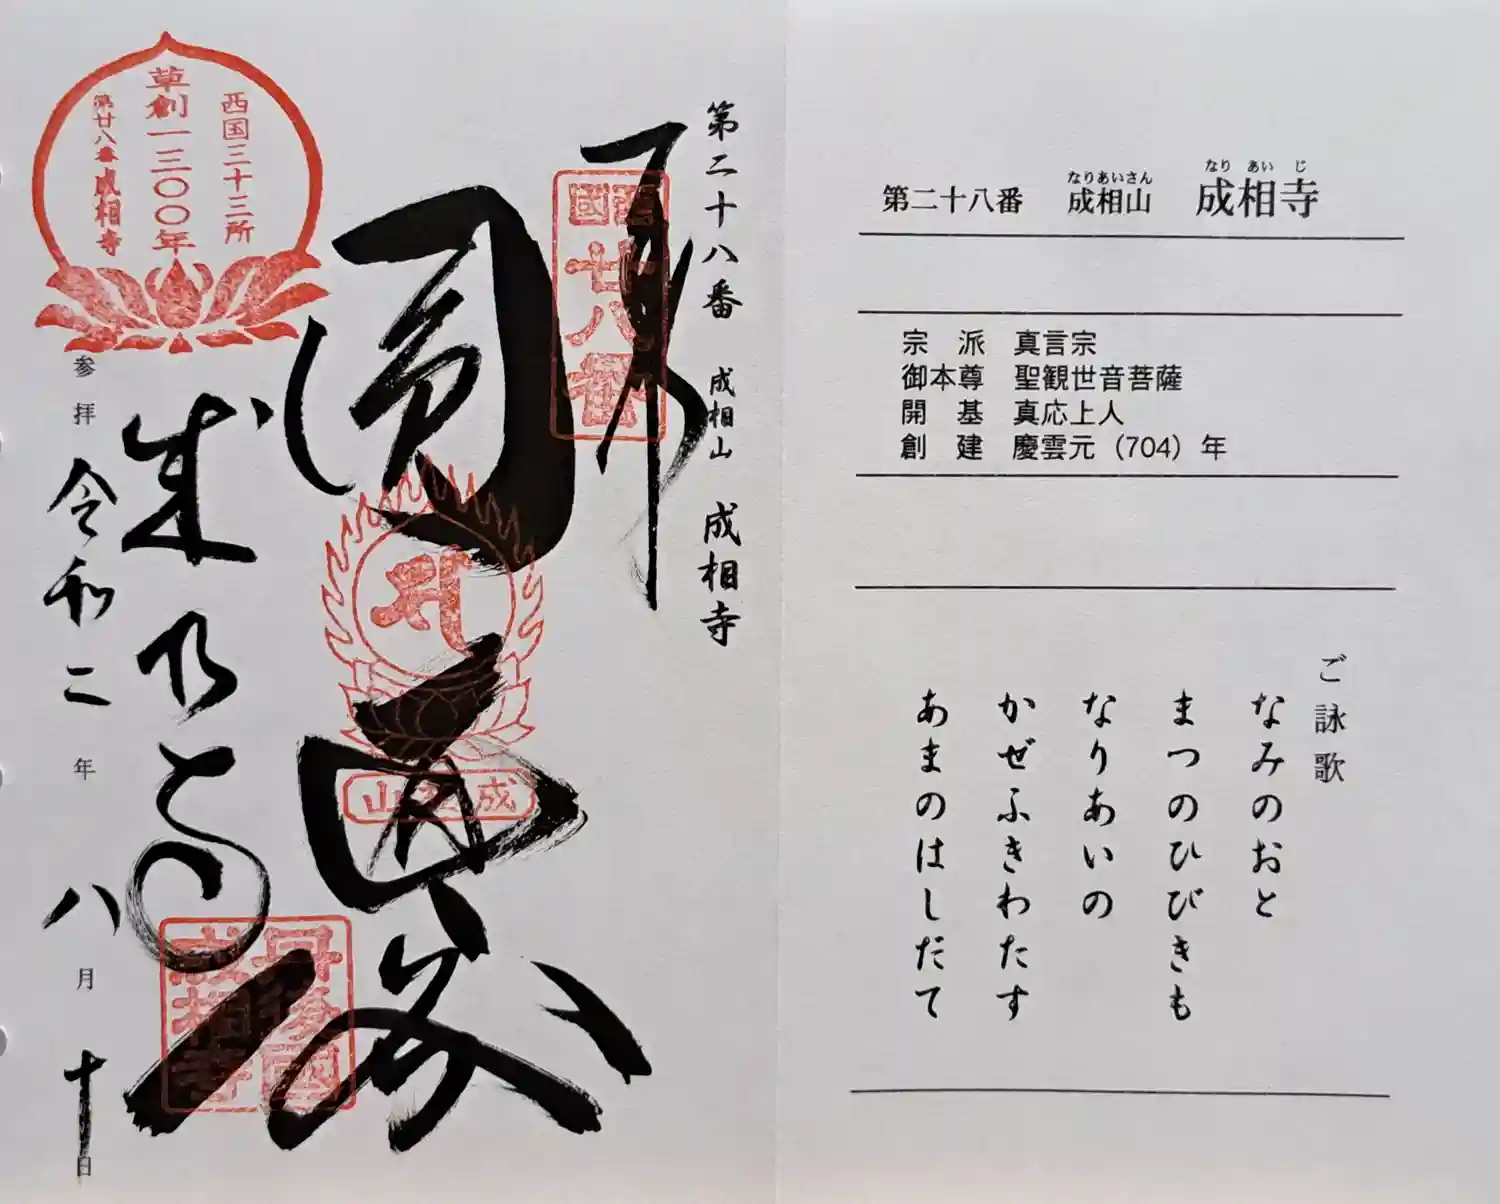 第二十八番 成相山 成相寺
奉
西國
廿八番
圓通閣
成相山
丹後國
成相寺
西国三十三所
草創一三〇〇年
第廿八番成相寺
参拝 令和二年 八月 十日
第二十八番 成相山 成相寺
なりあいさん なりあいじ
宗派 真言宗
御本尊 聖観世音菩薩
開基 真応上人
創建 慶雲元（704）年
ご詠歌
なみのおと
まつのひびきも
なりあいの
かぜふきわたす
あまのはしだて